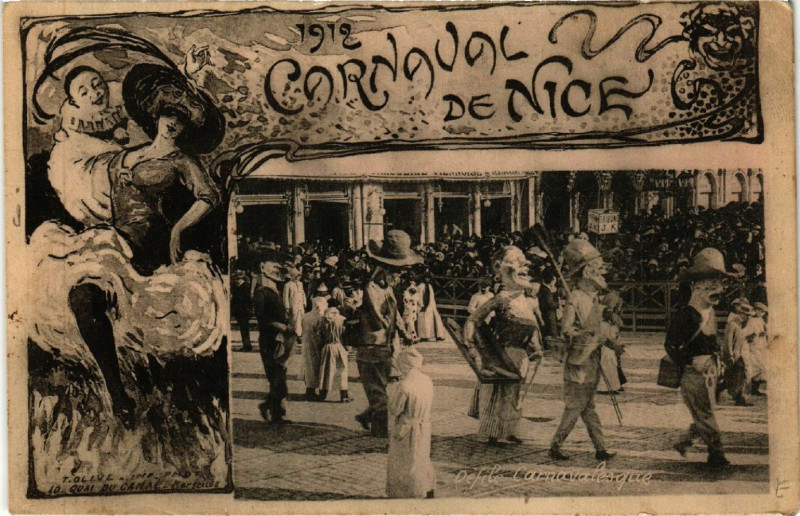 1912
CARNAVAL
DE NICE
J.K
T. OLIVE
10, QUAI DU CANAL - Marseille
Défilé Carnavalesque